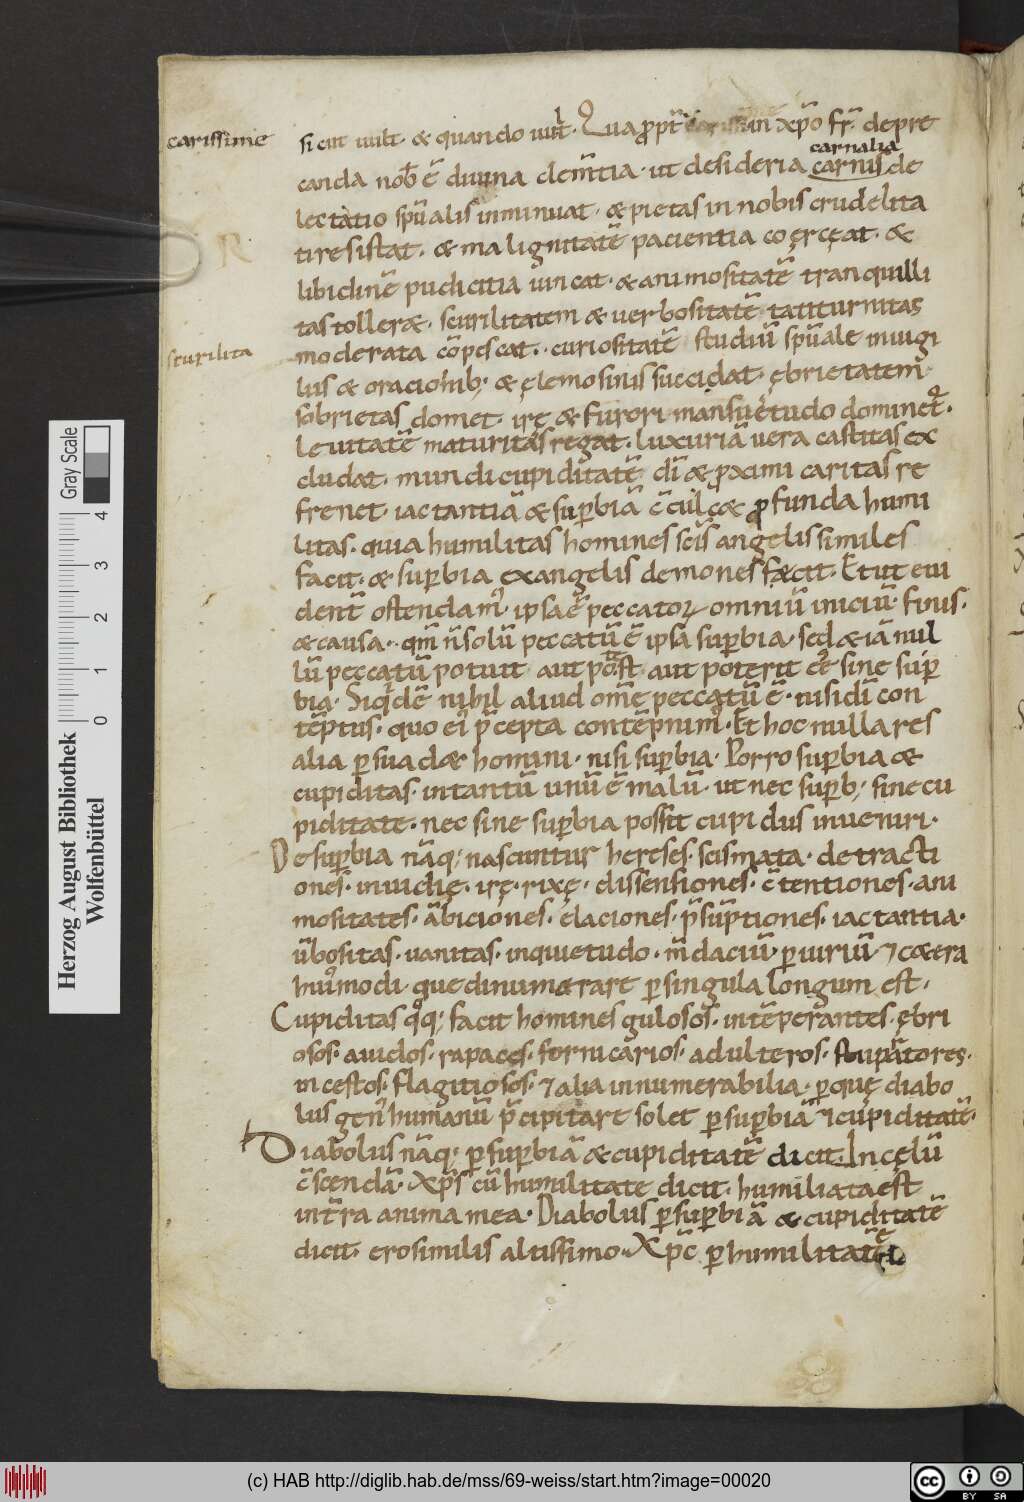 carissime
sicut uult · & quando uult · Quapropt̄ in xp̄o fr̄ · depre
carnalia
canda nob̄ ē diuina clem̄tia · ut desideria carnis de
lectatio sp̄ualis inminuat · & pietas in nobis crudelita
ti resistat · & malignitatē pacientia coerceat · &
libidinē pudicitia uincat · & animositatē tranquilli
tas toller& · scurilitatem & uerbositatē taciturnitas
scurilita
moderata cōpescat · curiositatē studiū sp̄uale inuigi
lus & oracionib; & ęlemosinis succidat · ębrietatem
sobrietas domet · irę & furori mansuetudo dominet᷑ ·
leuitatē maturitas regat · luxuriā uera castitas ex
cludat · mundi cupiditatē dī & ꝓximi caritas re
frenet · iactantiā & suꝑbiā c̄culc& ꝓfunda humi
litas · quia humilitas homines scīs angelis similes
facit · & suꝑbia ex angelis demones fecit · Et ut eui
dent̄ ostendam᷒ · ipsa ē peccatoꝝ omniū iniciū · finis ·
& causa · qm̄ n̄ solū peccatū ē ipsa suꝑbia · sed & iā nul
lū peccatū potuit aut potest aut poterit ēē sine suꝑ
bia · Siq̇dē nihil aliud om̄e peccatū ē · nisi dī con
tēptus · quo ei᷒ p̄cepta contēpnim᷒ · Et hoc nulla res
alia ꝑsuad& homini · nisi suꝑbia · Porro suꝑbia &
cupiditas · in tantū unū ē malū · ut nec suꝑb; sine cu
piditate · nec sine suꝑbia possit cupidus inueniri ·
De suꝑbia nāq; nascuntur hereses · scismata · detracti
ones · inuidię · irę · rixę · dissensiones · c̄tentiones · ani
mositates · ābiciones · elaciones · p̄sūptiones · iactantia ·
ūbositas · uanitas · inquietudo · m̄daciū · ꝑiuriū ⁊ c&era
hui᷒modi · que dinumerare ꝑ singula longum est ·
Cupiditas q̊q; facit homines gulosos · intēperantes · ębri
osos · auidos · rapaces · fornicarios · adulteros · stupratores ·
incestos · flagitiosos · ⁊ alia innumerabilia · ꝑ quę diabo
lus gen᷒ humanū p̄cipitare solet ꝑ suꝑbiā ⁊ cupiditatē ·
Diabolus nāq; ꝑ suꝑbiā & cupiditatē dicit · In cęlū
c̄scendā · Xp̄s cū humilitate dicit · humiliata est
in tr̄ra anima mea · Diabolus ꝑ suꝑbiā & cupiditatē
dicit · ero similis altissimo · Xp̄c ꝑ humilitatē
Herzog August Bibliothek
Wolfenbüttel
Gray Scale
0 1 2 3 4
(c) HAB http://diglib.hab.de/mss/69-weiss/start.htm?image=00020
cc BY SA